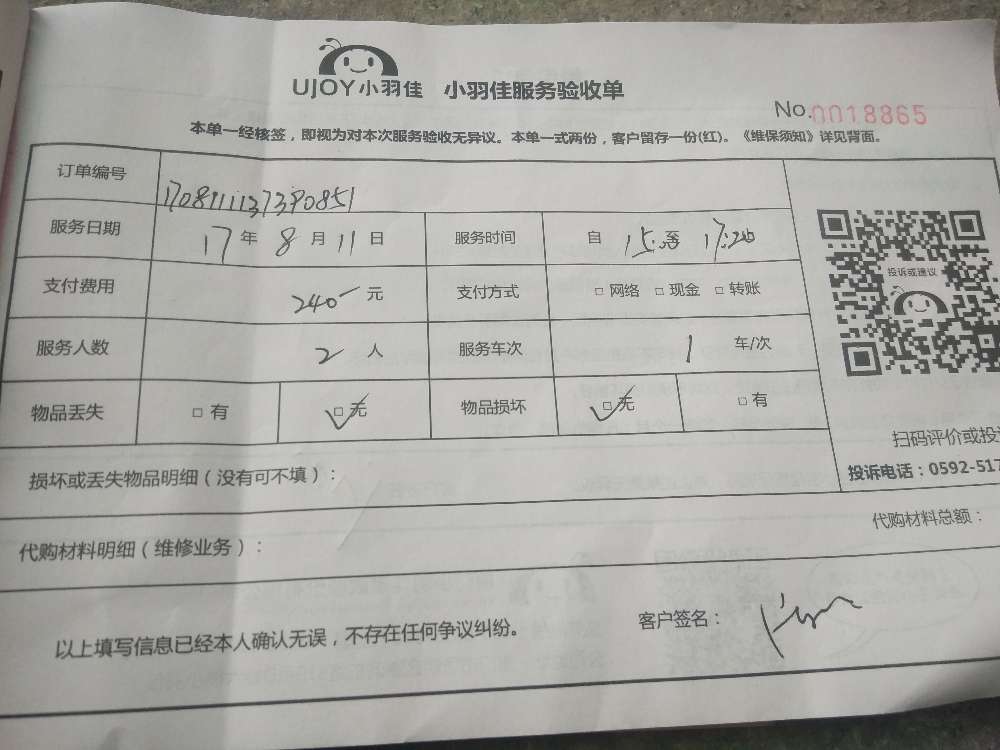 UJOY小羽佳 小羽佳服务验收单
No.0018865
本单一经核签，即视为对本次服务验收无异议。本单一式两份，客户留存一份(红)。《维保须知》详见背面。
订单编号
服务日期 17 年 8 月 11 日 服务时间 自 15:00 至 17:20
支付费用 240 元 支付方式 □ 网络 □ 现金 □ 转账
投诉或建议
服务人数 2 人 服务车次 1 车/次
物品丢失 □ 有 □ 无 物品损坏 □ 无 □ 有
扫码评价或投
损坏或丢失物品明细（没有可不填）：
投诉电话：0592-517
代购材料明细（维修业务）：
代购材料总额：
以上填写信息已经本人确认无误，不存在任何争议纠纷。
客户签名：